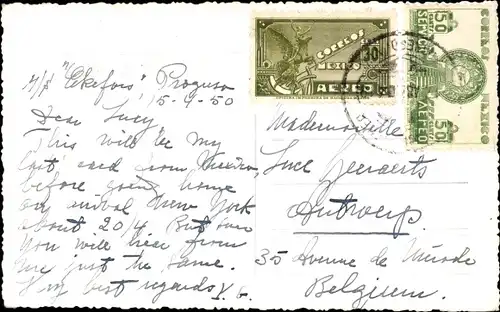 M/S "Ekefors", Progreso
15-4-50
Dear Lucy
This will be my
last card from Mexico,
before going home
on arrival New York
about 20/4. But
You will hear from
me just the same.
King best regards
Mademoiselle
Luce Geeraerts
Antwerp.
35 Avenue de
Belgium.
CORREOS
MEXICO
AEREO
30
50
AEREO
50
CORREOS MEXICO